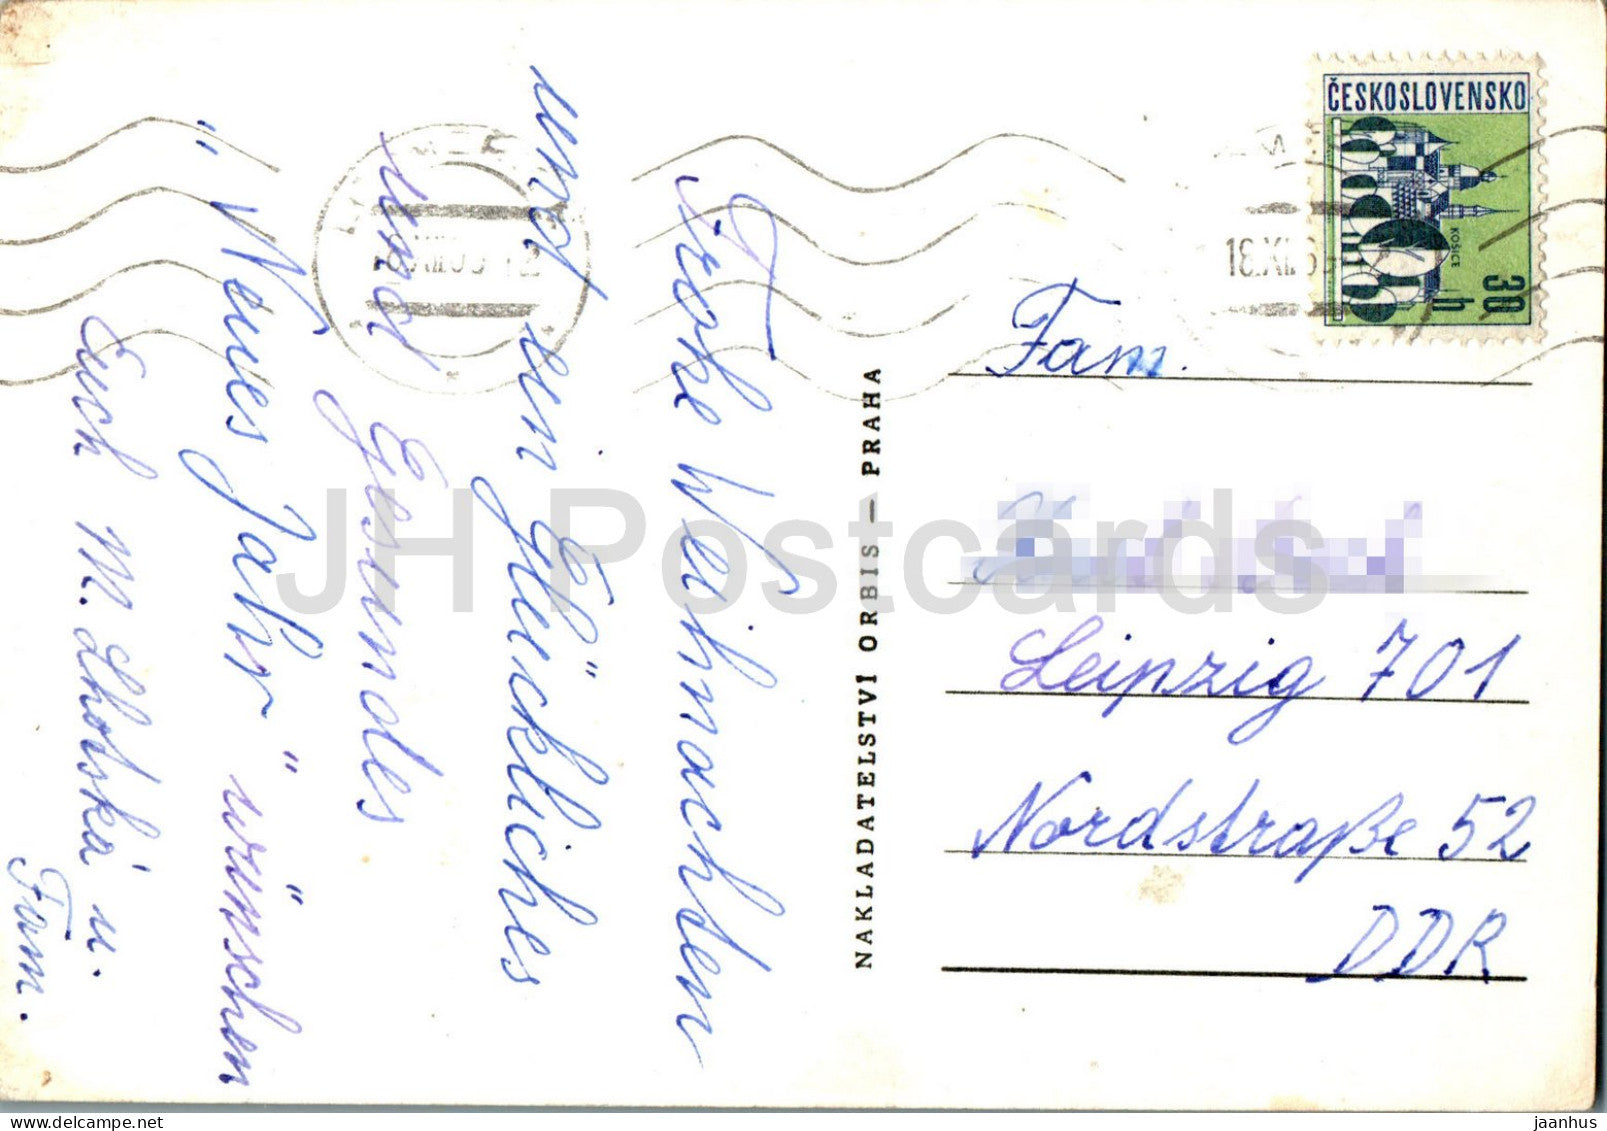 Frohe Weihnachten
und ein Glückliches
und Gesundes
"Neues Jahr" wünschen
Euch M. Lhotská u.
Fam.
NAKLADATELSTVÍ ORBIS — PRAHA
ČESKOSLOVENSKO
KOŠICE
30 h
18.XII.6
Fam.
Leipzig 701
Nordstraße 52
DDR
JH Postcards
jaanhus